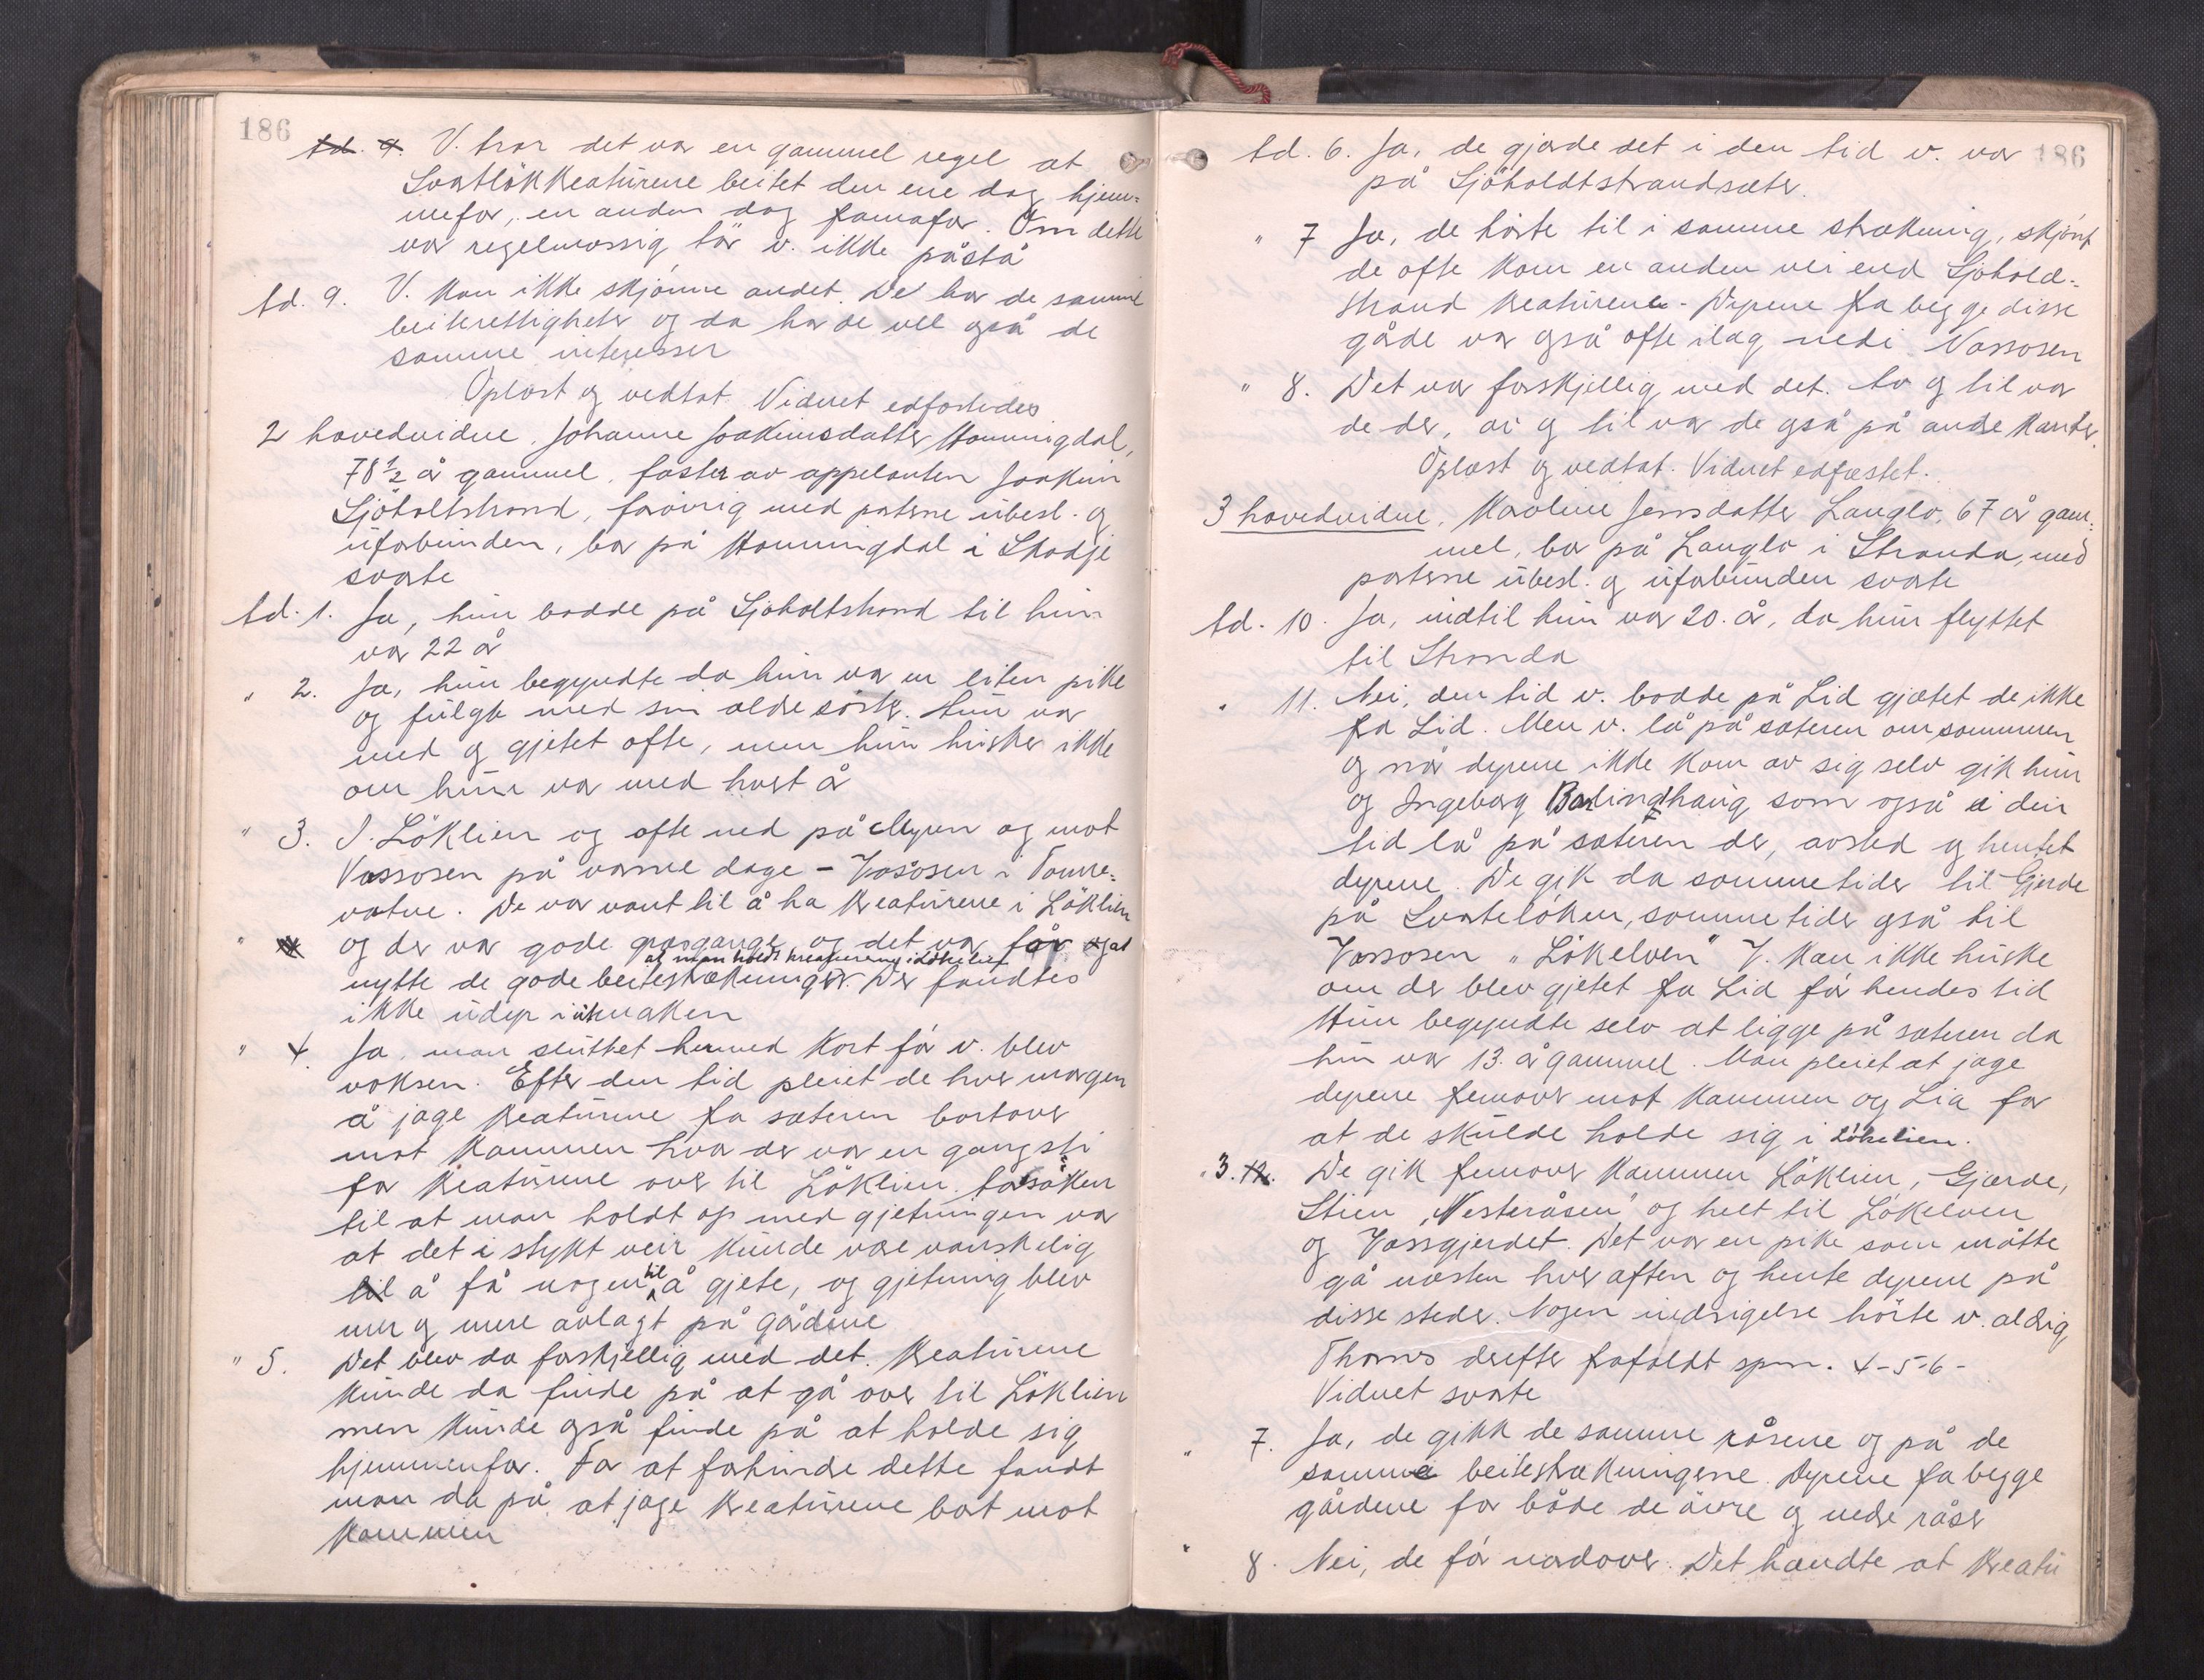 186
td. 9. V. tror det var en gammel regel at
Svartlökkreatúrene beitet den ene dag hjem-
mefor, en anden dag framafor. Om dette
var regelmæssig tör v. ikke påstå
td. 9. V. kan ikke skjönne andet. De har de samme
beiterettigheter og da har de vel også de
samme interesser
Oplæst og vedtat. Vidnet edfæstedes
2 hovedvidne, Johanne Joakimsdatter Honningdal,
78 1/2 år gammel, faster av appelanten Joakim
Sjöholtstrand, forövrig med paterne úbesl. og
úforbúnden, bor på Honningdal i Skodje
svarte
td. 1. Ja, hún bodde på Sjöholtstrand til hún
var 22 år
" 2. Ja, hún begyndte da hún var en liten pike
og fúlgte med sin ældre söster. Hún var
med og gjetet ofte, men hún húsker ikke
om hún var med hvert år
" 3. I Löklien og ofte ned på Myren og mot
Vassosen på varme dage - Vasosen i Tomre-
vatne. De var vant til å ha kreatúrene i Löklien
" og der var gode græsgange og det var for at
at man holdt kreaturene i Löklien
nytte de gode beitestrækninger. Der fandtes
ikke údyr i útmarken
" 4. Ja, man slúttet hermed kort för v. blev
voksen. Efter den tid pleiet de hver morgen
å jage kreatúrene fra sæteren bortover
mot Kammen hvor der var en gangsti
for kreatúrene over til Löklien. Årsaken
til at man holdt op med gjetningen var
at det i stykt veir kúnde være vanskelig
til å få nogen til å gjete, og gjetning blev
mer og mere avlagt på gårdene
" 5. Det blev da forskjellig med det. Kreatúrene
kúnde da finde på at gå over til Löklien
men kúnde også finde på at holde sig
hjemmenfor. For at forhindre dette fandt
man da på at jage kreatúrene bort mot
Kammen
186
td. 6. Ja, de gjorde det i den tid v. var
på Sjöholdtstrandsæter.
" 7 Ja, de hörte til i samme strækning, skjönt
de ofte kom en anden vei end Sjöhold-
strand kreatúrene - Dyrene fra begge disse
gårde var også ofte ilag nedi Vassosen
" 8. Det var forskjellig med det. Av og til var
de der, av og til var de også på andre kanter.
Oplæst og vedtat. Vidnet edfæstet.
3 hovedvidne, Karoline Jensdatter Langlo, 67 år gam-
mel, bor på Langlo i Stranda, med
parterne úbesl. og úforbúnden svarte
td. 10. Ja, indtil hún var 20. år, da hún flyttet
til Stranda
" 11. Nei, den tid v. bodde på Lid gjætet de ikke
fra Lid. Men v. lå på sæteren om sommeren
og når dyrene ikke kom av sig selv gik hún
og Ingeborg Berlindhaúg som også i den
tid lå på sæteren der, avsted og hentet
dyrene. De gik da sommetider til Gjerde
på Svarteløken, sommetider også til
Vassosen "Lökelven" V. kan ikke húske
om der blev gjetet fra Lid för hendes tid
Hún begyndte selv at ligge på sæteren da
hún var 13. år gammel. Man pleiet at jage
dyrene fremover mot Kammen og Lia for
at de skúlde holde sig i Lökelien.
" 3. 12. De gik fremover Kammen Löklien, Gjærde,
Stien, "Vesteråsen" og helt til Lökelven
og Vassgjerdet. Det var en pike som måtte
gå næsten hver aften og hente dyrene på
disse steder. Nogen indsigelse hörte v. aldrig
Thomes derefter frafaldt spm. 4-5-6-
Vidnet svarte
" 7. Ja, de gikk de samme råsene og på de
samme beitestrækningerne. Dyrene fra begge
gårdene for både de övre og nedre råser
" 8. Nei, de for nordover. Det hændte at kreatú